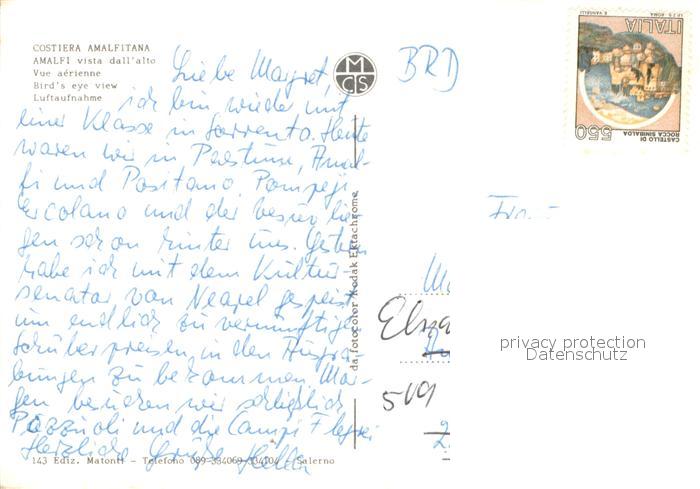 COSTIERA AMALFITANA
AMALFI vista dall'alto
Vue aérienne
Bird's eye view
Luftaufnahme
Liebe Margret,
ich bin wieder mit
einer Klasse in Sorrento. Heute
waren wir in Paestum, Amal-
fi und Positano. Pompeji
Ercolano und der Vesuv lie-
gen schon hinter uns. Gestern
habe ich mit dem Kultur-
senator von Neapel gespeist
um endlich zu vernünftigen
Schülerpreisen in den Ausgra-
bungen zu bekommen. Mor-
gen besuchen wir schließlich
Pozzuoli und die Campi Flegrei
Herzliche Grüße
143 Ediz. Matonti - Telefono 089-334069-334104 - Salerno
M
C S
da fotocolor Kodak Ektachrome
BRD
ITALIA
550
CASTELLO DI
ROCCA SINIBALDA
I.P.Z.S. ROMA
E. VANGELLI
Fra
Elsa
519
2
privacy protection
Datenschutz